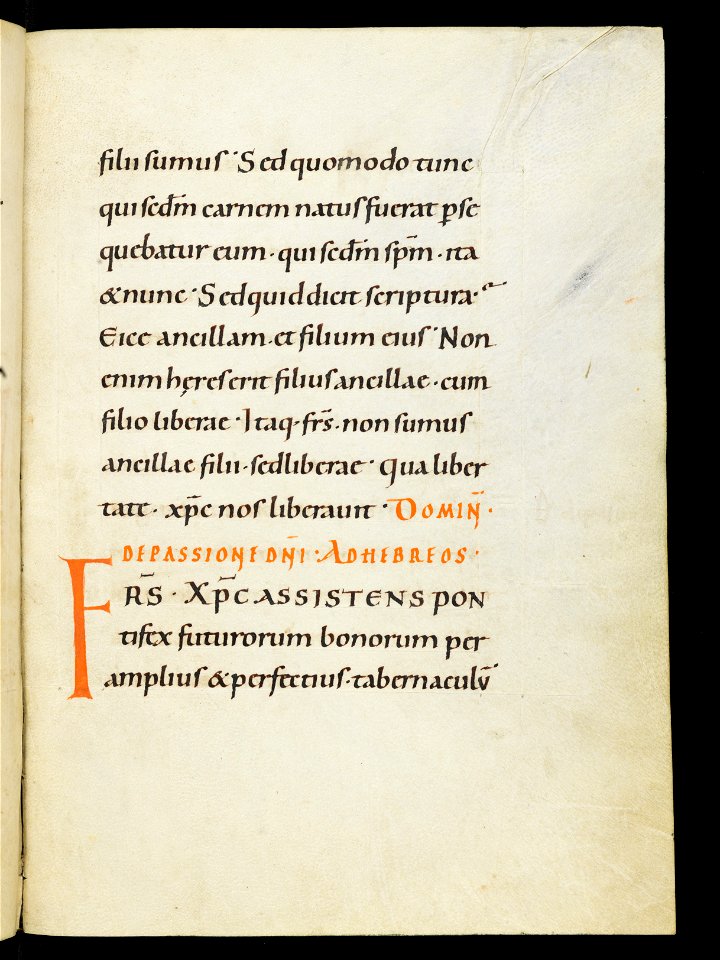 filii sumus · Sed quomodo tunc
qui secdm̄ carnem natus fuerat p̲se
quebatur eum · qui secdm̄ sp̄m · ita
&nunc · Sed quid dicit scriptura ·
Eice ancillam · et filium eius · Non
enim heres erit filius ancillae · cum
filio liberae · Itaq· fr̄s · non sumus
ancillae filii · sed liberae · Qua liber
tate · xp̄c nos liberavit · DOMIN̄ ·
DE PASSIONE DN̄I · AD HEBREOS ·
FR̄S · XP̄C ASSISTENS PON
tifex futurorum bonorum per
amplius & perfectius · tabernaculū